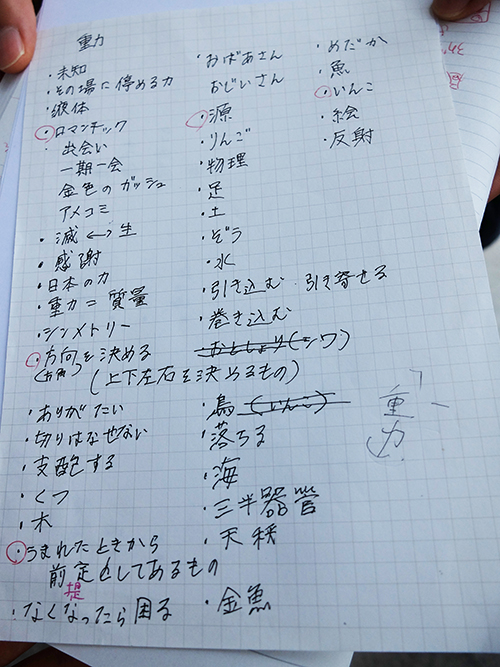 重力
・未知
・その場に停める力
・液体
・ロマンチック
・出会い
一期一会
金色のガッシュ
アメコミ
・滅↔生
・感謝
・日本の力
・重力=質量
・シンメトリー
・方向を決める
(上下左右を決めるもの)
・ありがたい
・切りはなせない
・支配する
・くつ
・木
・うまれたときから
前定としてあるもの
提
・なくなったら困る
・おばあさん
おじいさん
・源
・りんご
・物理
・足
・土
・ぞう
・水
・引き込む ・引き寄せる
・巻き込む
おとしより(シワ)
・鳥(いんこ)
・落ちる
・海
・三半器管
・天秤
・金魚
・めだか
・魚
・いんこ
・絵
・反射
重力